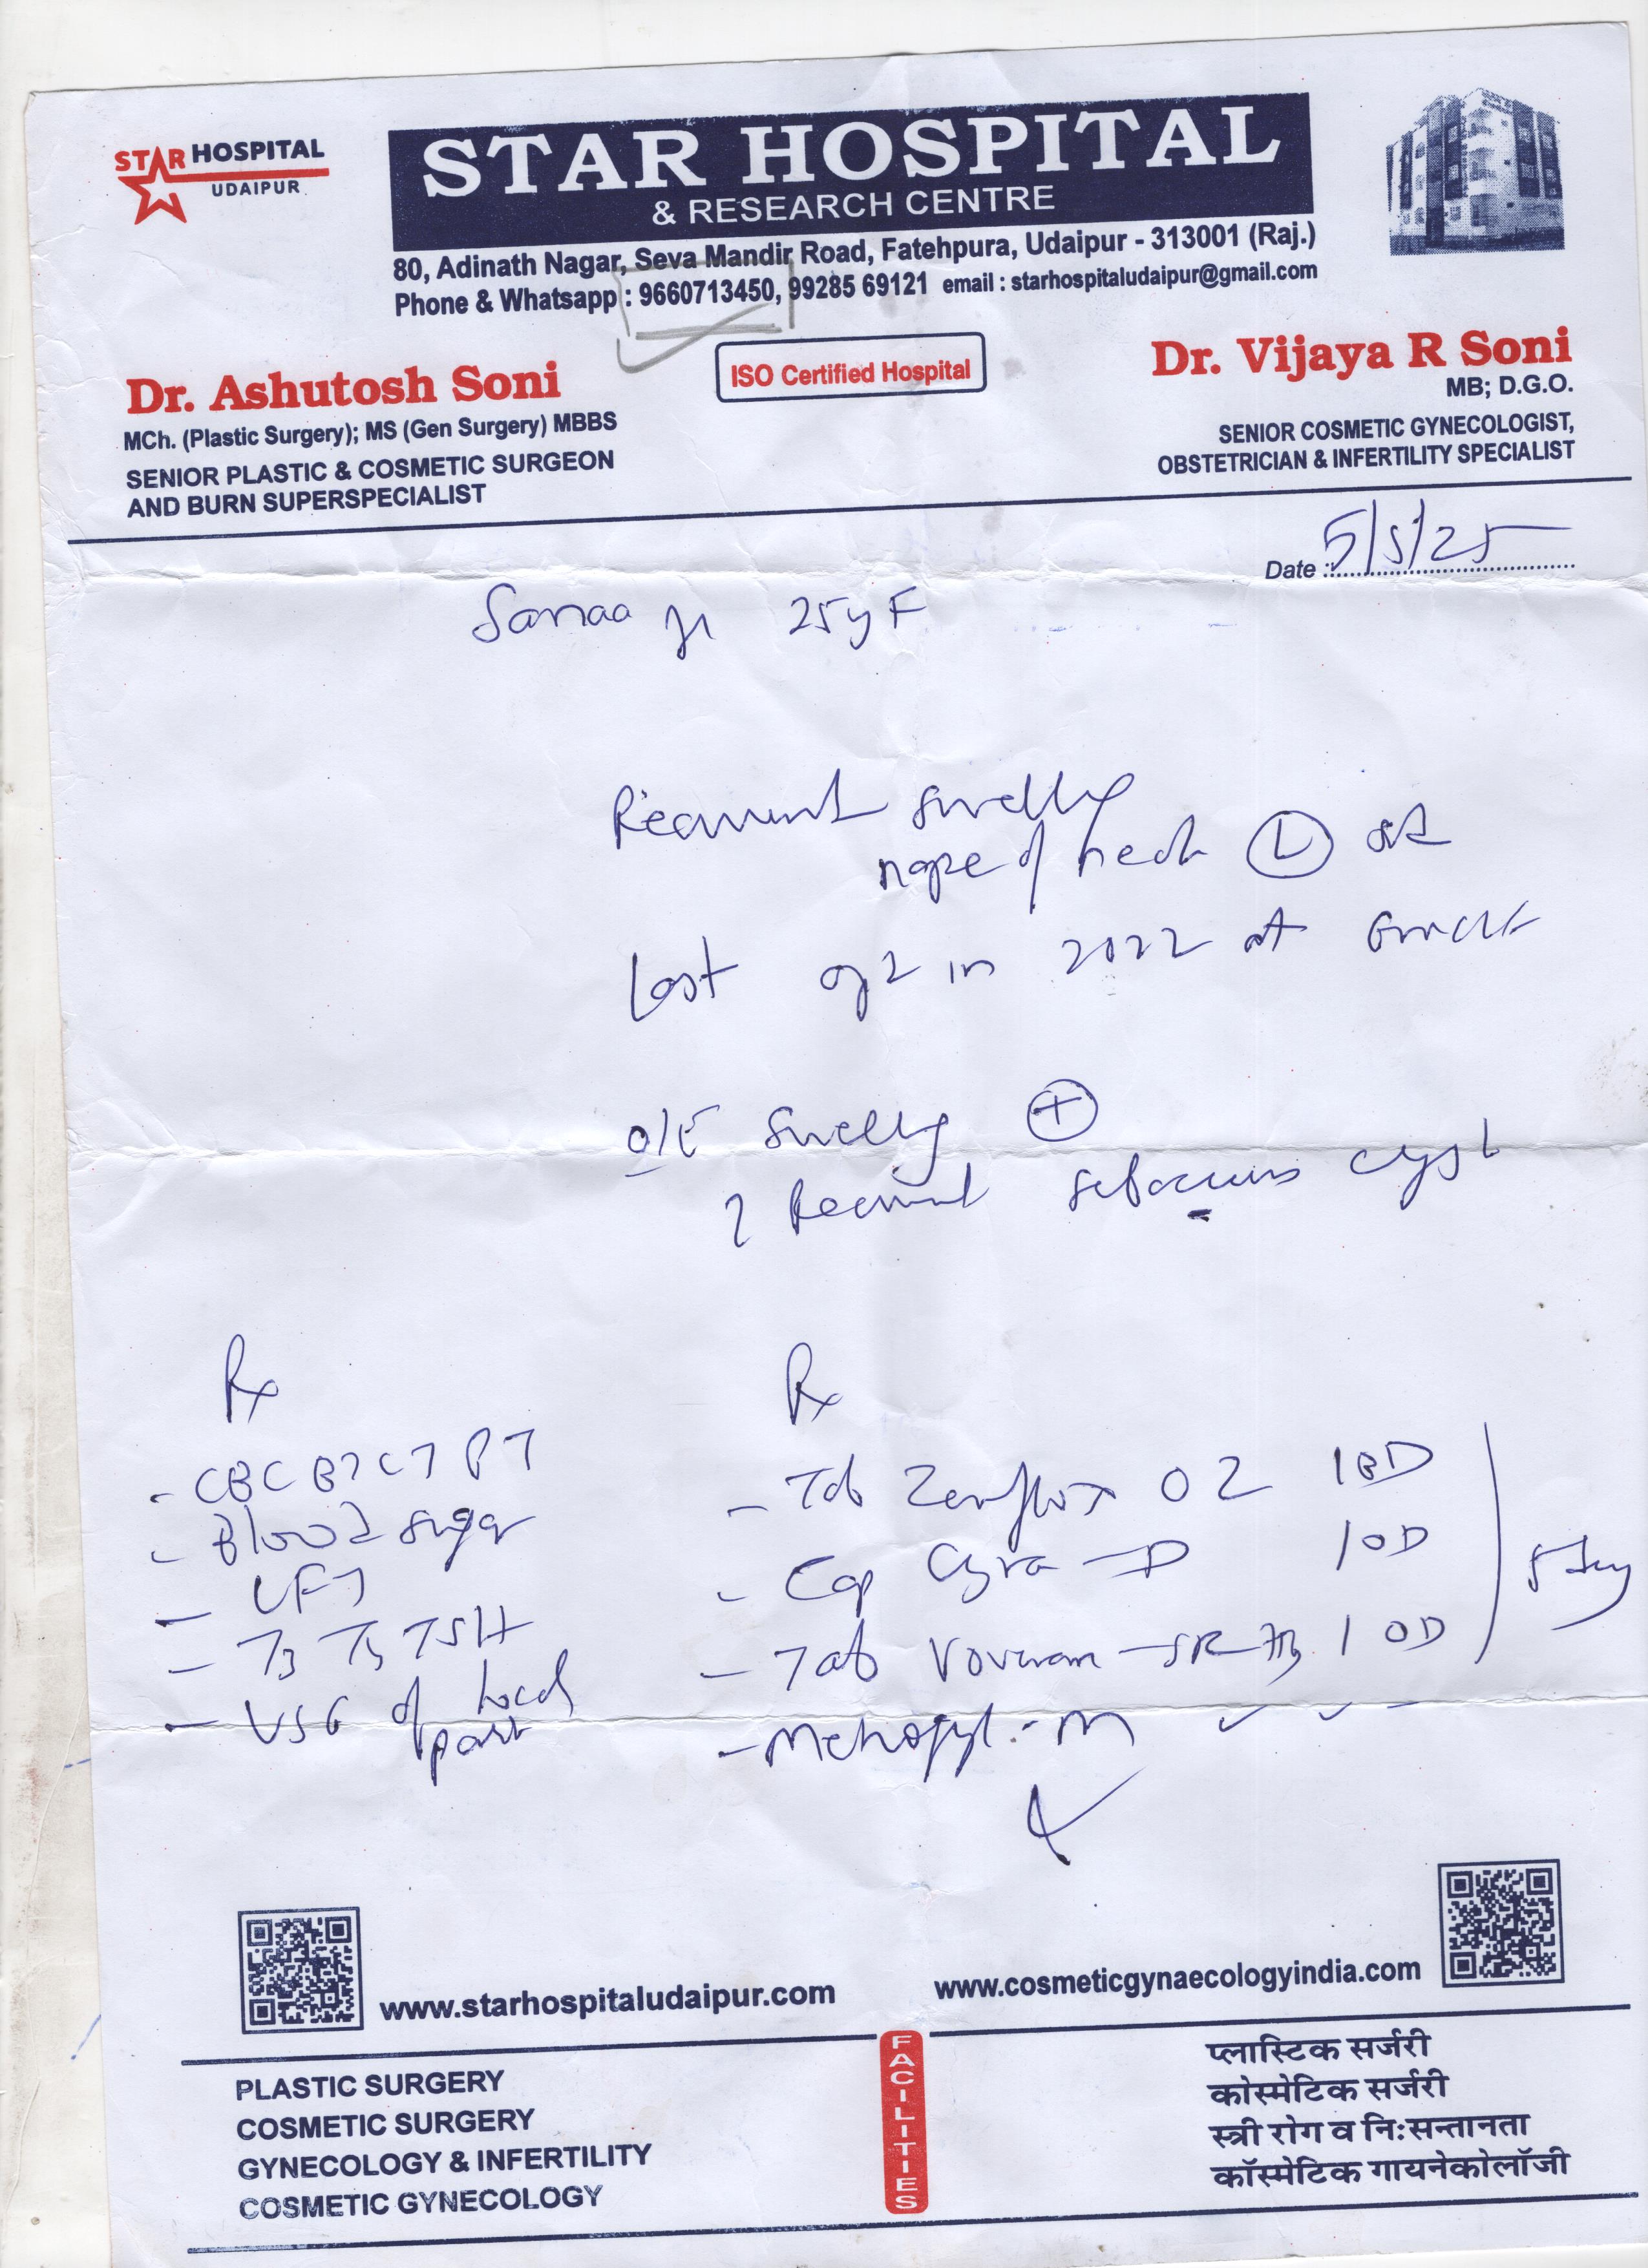 STAR HOSPITAL
UDAIPUR
STAR HOSPITAL
& RESEARCH CENTRE
80, Adinath Nagar, Seva Mandir Road, Fatehpura, Udaipur - 313001 (Raj.)
Phone & Whatsapp : 9660713450, 99285 69121 email : starhospitaludaipur@gmail.com
ISO Certified Hospital
Dr. Ashutosh Soni
MCh. (Plastic Surgery); MS (Gen Surgery) MBBS
SENIOR PLASTIC & COSMETIC SURGEON
AND BURN SUPERSPECIALIST
Dr. Vijaya R Soni
MB; D.G.O.
SENIOR COSMETIC GYNECOLOGIST,
OBSTETRICIAN & INFERTILITY SPECIALIST
Date : 5/5/25
25y F
Recurrent swelling
nape of neck (L)
Last in 2022 at
O/E swelling (+)
? Recurrent sebaceous cyst
Rx
- CBC BT CT PT
- Blood sugar
- LFT
- T3 T4 TSH
- USG of local
part
Rx
- Tab Zenflox OZ 1 BD
- Cap Cyra - D 1 OD
- Tab Voveran - SR 1 OD
5 day
- Metrogyl - M
www.starhospitaludaipur.com
www.cosmeticgynaecologyindia.com
FACILITIES
PLASTIC SURGERY
COSMETIC SURGERY
GYNECOLOGY & INFERTILITY
COSMETIC GYNECOLOGY
प्लास्टिक सर्जरी
कोस्मेटिक सर्जरी
स्त्री रोग व नि:सन्तानता
कॉस्मेटिक गायनेकोलॉजी